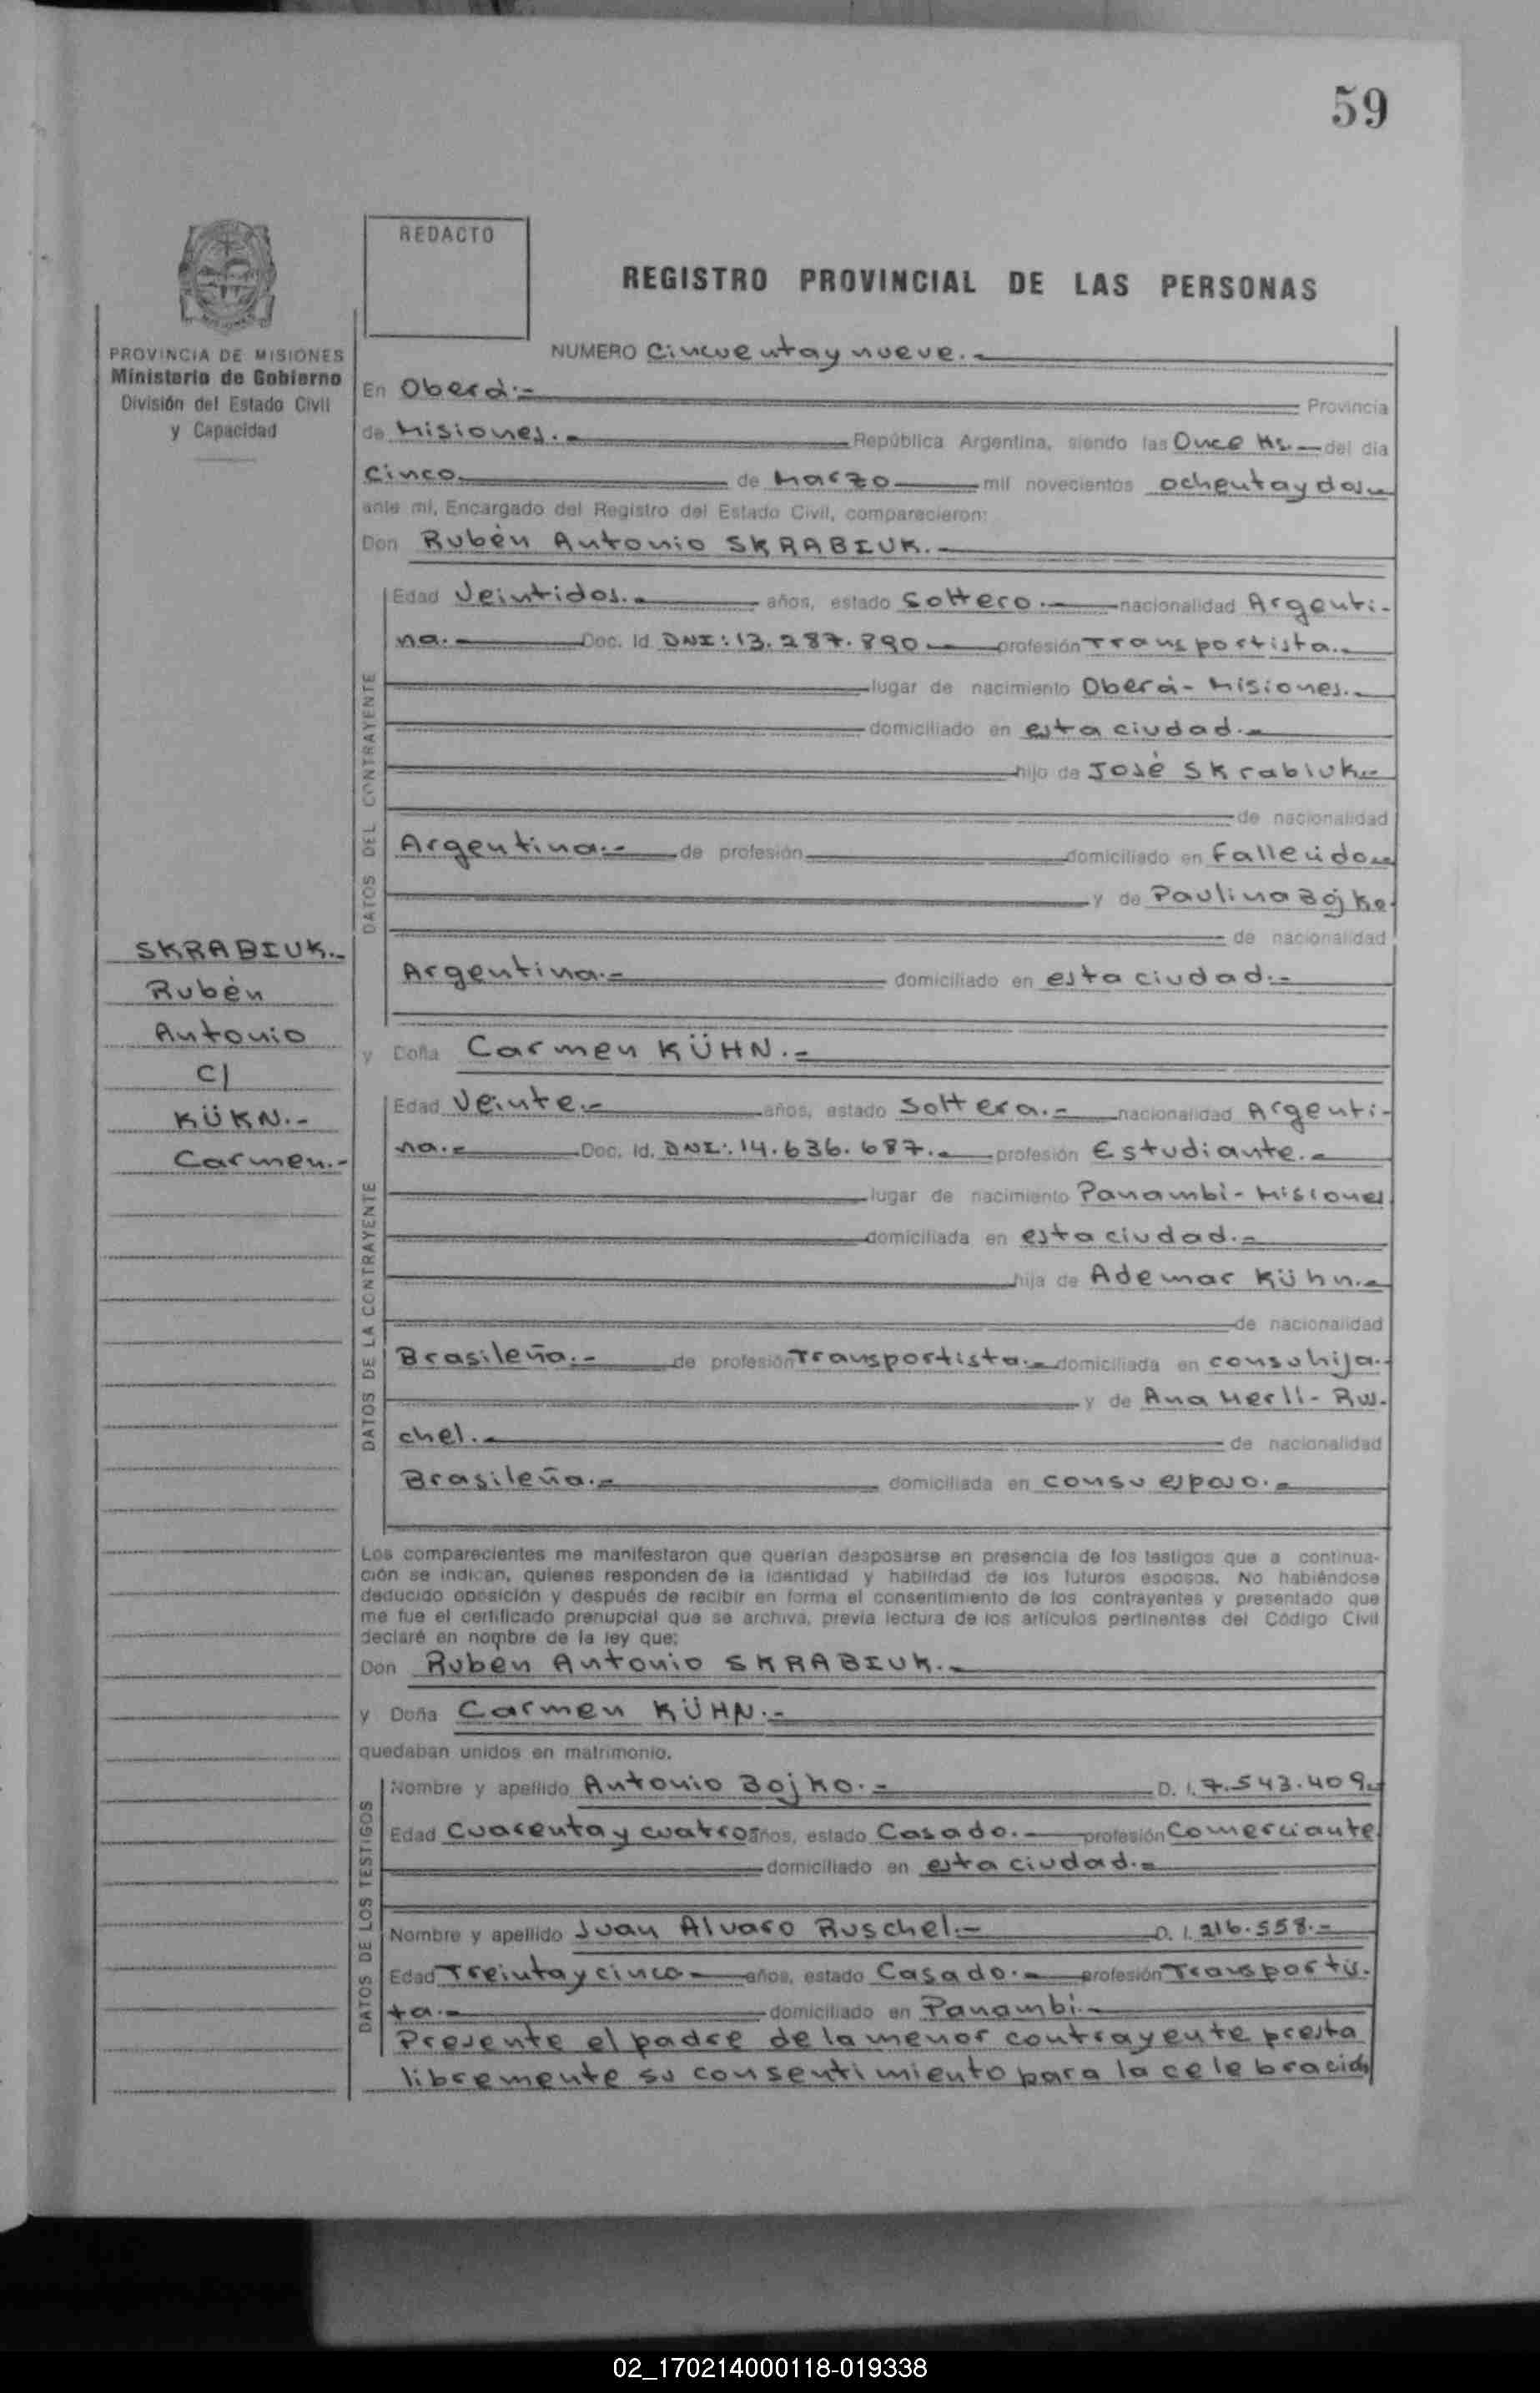 59
REDACTO
REGISTRO PROVINCIAL DE LAS PERSONAS
PROVINCIA DE MISIONES
Ministerio de Gobierno
División del Estado Civil
y Capacidad
NUMERO Cincuenta y nueve.-
En Oberá.- Provincia
de Misiones.- República Argentina, siendo las Once Hs.- del día
Cinco de Marzo mil novecientos ochenta y dos
ante mí, Encargado del Registro del Estado Civil, comparecieron:
Don Rubén Antonio SKRABIUK.-
DATOS DEL CONTRAYENTE
Edad Veintidos.- años, estado Soltero.- nacionalidad Argenti-
na.- Doc. Id. DNI: 13.287.890 profesión Transportista.-
lugar de nacimiento Oberá- Misiones.-
domiciliado en esta ciudad.-
hijo de José Skrabiuk.-
de nacionalidad
Argentina.- de profesión domiciliado en Falleido
y de Paulina Bojke
de nacionalidad
Argentina.- domiciliado en esta ciudad.-
SKRABIUK.-
Rubén
Antonio
C/
KÜKN.-
Carmen.-
y Doña Carmen KÜHN.-
DATOS DE LA CONTRAYENTE
Edad Veinte.- años, estado Soltera.- nacionalidad Argenti-
na.- Doc. Id. DNI: 14.636.687.- profesión Estudiante.-
lugar de nacimiento Panambi- Misiones
domiciliada en esta ciudad.-
hija de Ademar Kühn.-
de nacionalidad
Brasileña.- de profesión Transportista.- domiciliada en con su hija.-
y de Ana Merli- Rus-
chel.- de nacionalidad
Brasileña.- domiciliada en con su esposo.-
Los comparecientes me manifestaron que querían desposarse en presencia de los testigos que a continua-
ción se indican, quienes responden de la identidad y habilidad de los futuros esposos. No habiéndose
deducido oposición y después de recibir en forma el consentimiento de los contrayentes y presentado que
me fue el certificado prenupcial que se archiva, previa lectura de los artículos pertinentes del Código Civil
declaré en nombre de la ley que:
Don Rubén Antonio SKRABIUK.-
y Doña Carmen KÜHN.-
quedaban unidos en matrimonio.
DATOS DE LOS TESTIGOS
Nombre y apellido Antonio Bojko.- D. I. 7.543.409.-
Edad Cuarenta y cuatro años, estado Casado.- profesión Comerciante
domiciliado en esta ciudad.-
Nombre y apellido Juan Alvaro Ruschel.- D. I. 216.558.-
Edad Treinta y cinco años, estado Casado.- profesión Transportis-
ta.- domiciliado en Panambi.-
Presente el padre de la menor contrayente presta
libremente su consentimiento para la celebració
02_170214000118-019338